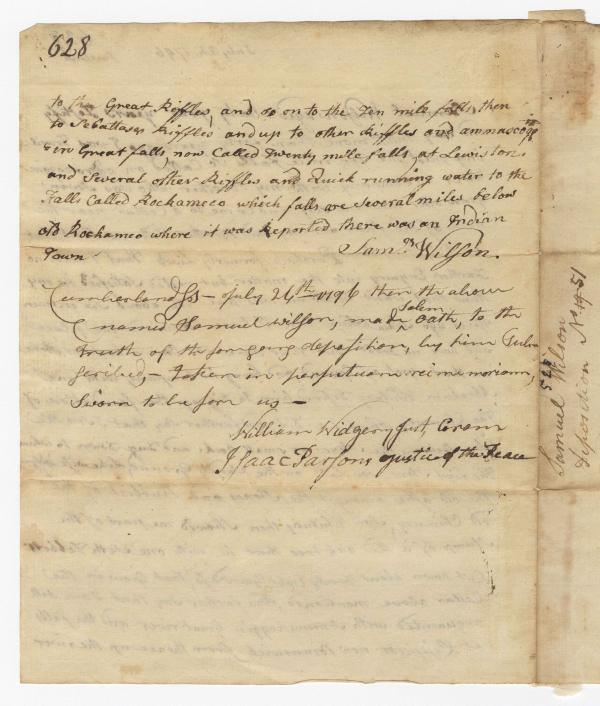 628
to the Great Riffles, and so on to the Ten mile falls, then
to Sebattases Riffles and up to other Riffles and amnascogg
=in Great falls, now Called Twenty mile falls at Lewiston.
and Several other Riffles and Quick running water to the
Falls Called Rockameco which falls are Several miles below
old Rockameo where it was Reported there was an Indian
Town
Saml Wilson.
Cumberland Ss — July 26th 1796 then the above
named Samuel Wilson, made Solem Oath, to the
truth of the forgoing deposition, by him Subs
scribed, — taken in perpetuam reimemoriam,
Sworn to before us —
William Widgery Just. Coram
Isaac Parsons Justice of the Peace
Samuel Wilson
Deposition No 51